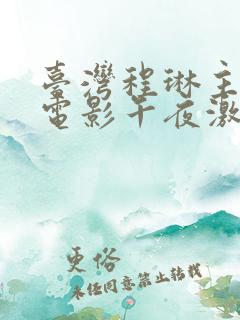 臺灣程琳主
電影午夜激
更俗
未经同意禁止转载